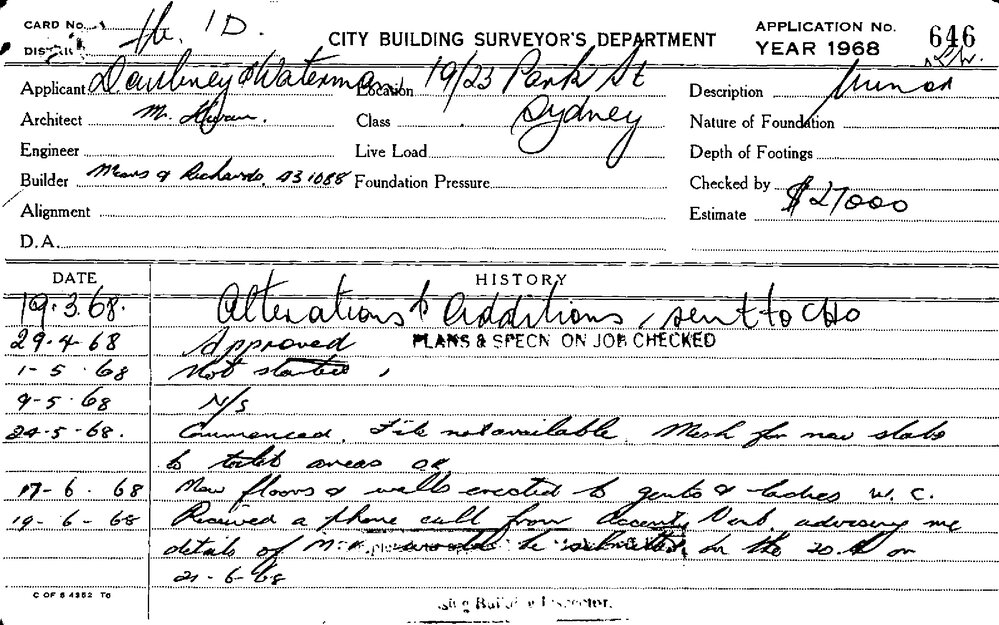 CARD No.
DISTRICT
1D.
CITY BUILDING SURVEYOR'S DEPARTMENT
APPLICATION No. 646
YEAR 1968
Applicant Daubney & Waterman
Location 19/23 Park St
Sydney
Description
Architect M.
Class
Nature of Foundation
Engineer
Live Load
Depth of Footings
Builder Means & Richards, 431088
Foundation Pressure
Checked by
Alignment
Estimate $27000
D.A.
DATE HISTORY
19.3.68. Alterations & additions, sent to CHO
29-4-68 Approved PLANS & SPECN ON JOB CHECKED
1-5-68 Not started,
9-5-68 N/s
24-5-68. Commenced. File not available. Mesh for new slabs
to toilet areas ok
17-6-68 New floors & walls erected to gents & ladies W.C.
19-6-68 Received a phone call from advising me
details of be on
21-6-68
C OF S 4352 T6
Building Inspector.